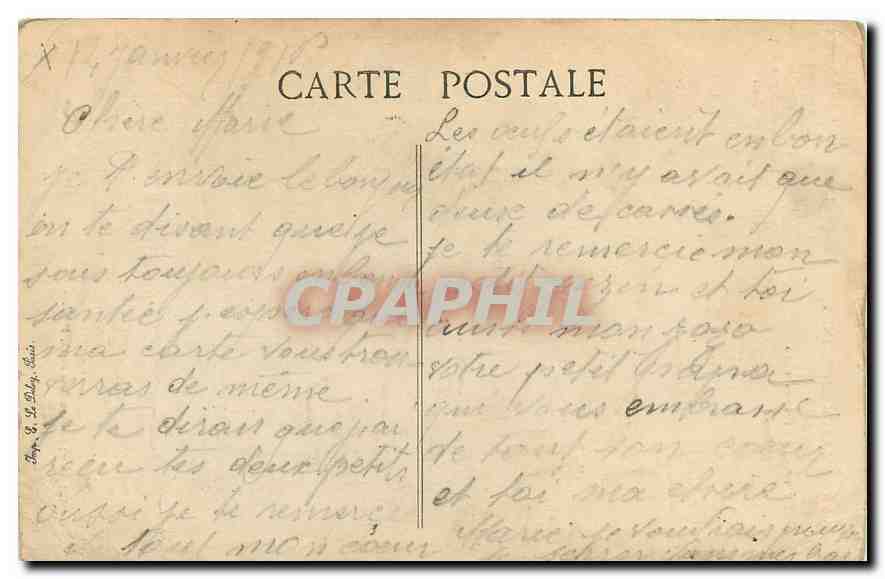 14 Janvier 191
CARTE POSTALE
Chère Marie
je t envoie le bonjour
en te disant que je
suis toujours en bon
santée j espere que
ma carte vous trou
verras de même
je te dirais que j'ai
recu tes deux petits
aussi je te remerci
et tout mon cœur
Les oeufs étaient en bon
état il n'y avait que
deux de cassés.
je te remercie mon
et toi
aussi mon zozo
votre petit
qui vous embrasse
de tout son coeur
et toi ma chere
Marie je voudrais
Imp. E. Le Deley, Paris.
CPAPHIL